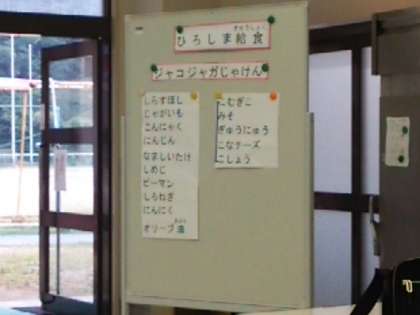 ひろしま給食
ジャコジャガじゃけん
しらすぼし
じゃがいも
こんにゃく
にんじん
なましいたけ
しめじ
ピーマン
しろねぎ
にんにく
オリーブ油
こむぎこ
みそ
ぎゅうにゅう
こなチーズ
こしょう